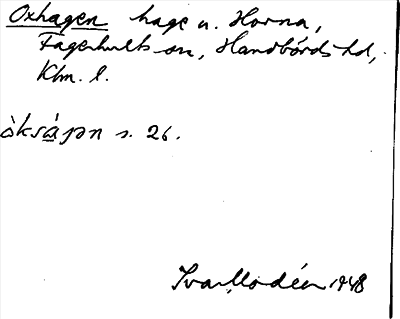 Oxhagen hage u. Horna,
Fagerhults sn, Handbörds hd,
Klm. l.
òksápən s. 26.
Ivar Modéer 1948